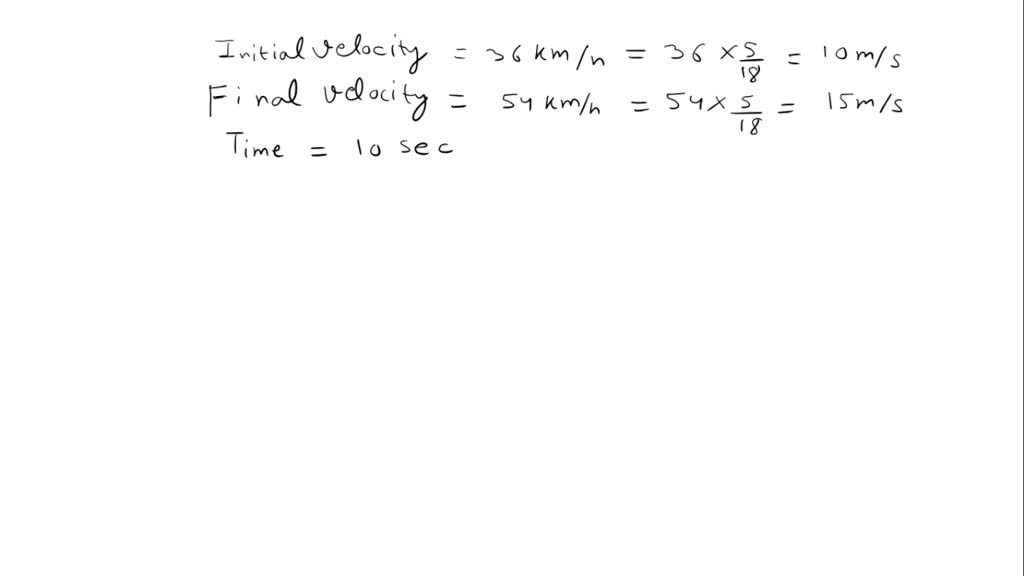 Initial velocity = 36 km/h = 36 × 5/18 = 10 m/s
Final velocity = 54 km/h = 54 × 5/18 = 15 m/s
Time = 10 sec